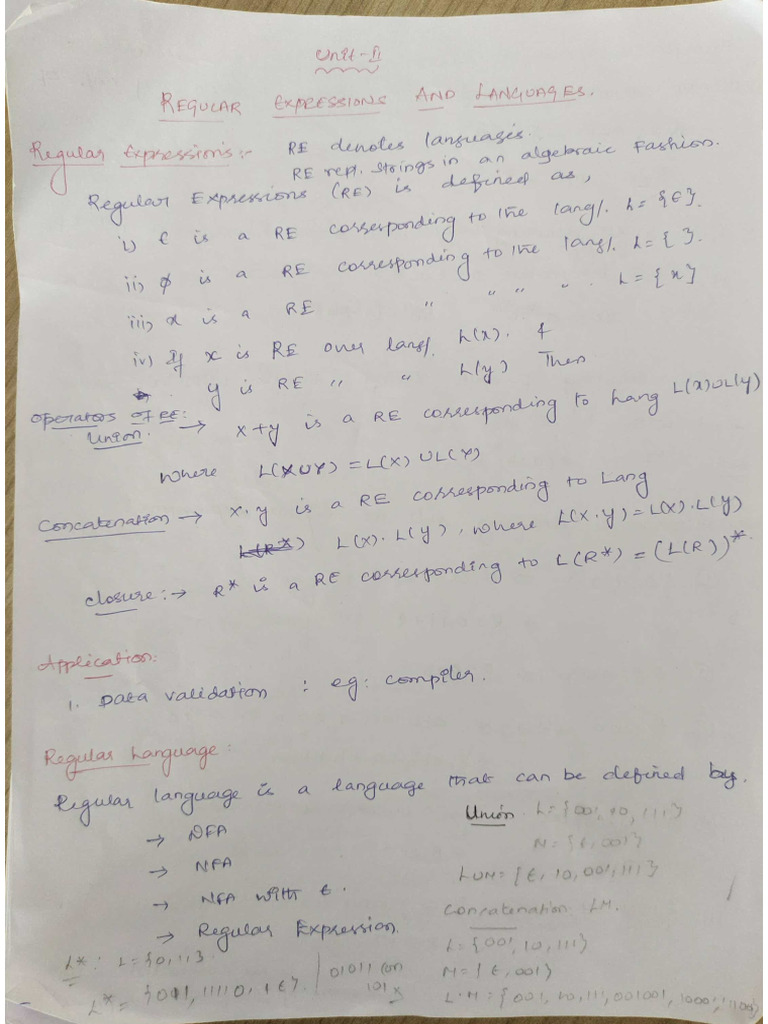 Unit-II
REGULAR EXPRESSIONS AND LANGUAGES.
Regular Expressions:- RE denotes languages.
RE rep. strings in an algebraic Fashion.
Regular Expressions (RE) is defined as,
i) ϵ is a RE corresponding to the lang/. L = {ϵ}.
ii) ϕ is a RE corresponding to the lang/. L = { }.
iii) x is a RE " " " " L = {x}
iv) If x is RE over lang/. L(x). &
y is RE " " L(y) Then
Operators of RE:
Union. → x+y is a RE corresponding to Lang L(x)UL(y)
where L(XUY) = L(X) UL(Y)
Concatenation → x.y is a RE corresponding to Lang
L(R*) L(x). L(y), where L(x.y) = L(x).L(y)
Closure:→ R* is a RE corresponding to L(R*) = (L(R))*.
Application:
1. Data validation : eg: compiler.
Regular Language:
Regular language is a language that can be defined by,
→ DFA
→ NFA
→ NFA with ϵ.
→ Regular Expression.
Union. L = {001, 10, 111}
M = {ϵ, 001}
LUM = {ϵ, 10, 001, 111}
Concatenation LM.
L = {001, 10, 111}
M = {ϵ, 001}
L.M = {001, 10, 111, 001001, 10001, 111001
L* : L = {0, 11}.
L* =
01011 can
101 x